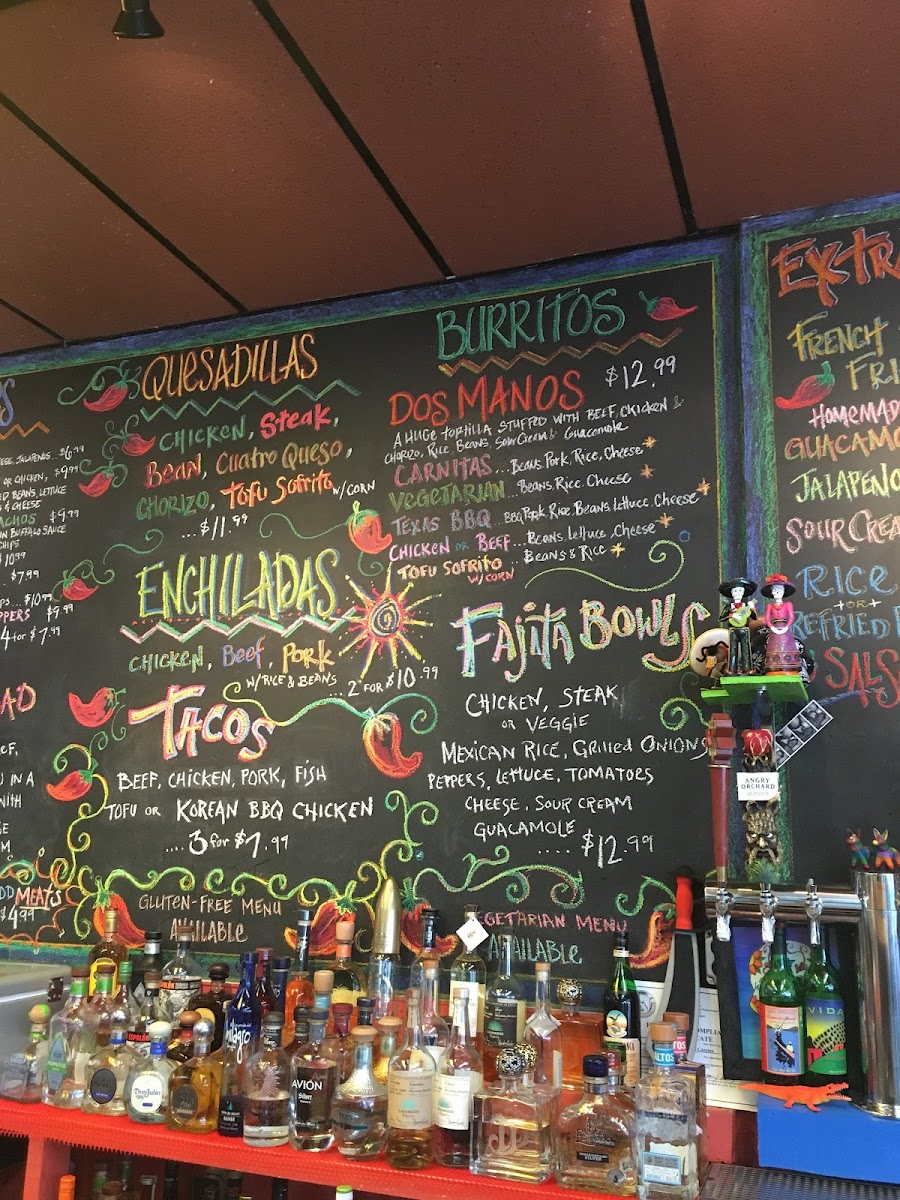 ESE, JALAPENOS .. $6.99
OR CHICKEN, $9.99
ED BEANS, LETTUCE
& CHEESE
ACHOS $9.99
N BUFFALO SAUCE
CHIPS
$10.99
$7.99
PS... $10.99
PPERS $9.99
4 for $7.99
AD
EEF,
U IN A
WITH
SE
M
DD MEATS
$4.99
QUESADILLAS
CHICKEN, Steak,
Bean, Cuatro Queso,
CHORIZO, Tofu Sofrito w/CORN
... $11.99
ENCHILADAS
CHICKEN, Beef, Pork
W/RICE & BEANS
... 2 FOR $10.99
TACOS
BEEF, CHICKEN, PORK, FISH
TOFU OR KOREAN BBQ CHICKEN
.... 3 for $7.99
GLUTEN-FREE MENU
AVAILABLE
BURRITOS
DOS MANOS $12.99
A HUGE TORTILLA STUFFED WITH BEEF, CHICKEN &
CHORIZO, RICE, BEANS, Sour Cream & Guacamole
CARNITAS... Beans, Pork, Rice, Cheese
VEGETARIAN... Beans, Rice, Cheese
TEXAS BBQ ... BBQ Pork, Rice, Beans, Lettuce, Cheese
CHICKEN OR BEEF... Beans, Lettuce, Cheese
TOFU SOFRITO W/CORN Beans & Rice
Fajita BOWLS
CHICKEN, STEAK
OR VEGGIE
MEXICAN RICE, Grilled ONIONS
PEPPERS, LETTUCE, TOMATOES
CHEESE, SOUR CREAM
GUACAMOLE
.... $12.99
VEGETARIAN MENU
AVAILABLE
EXTRA
FRENCH
FRI
HOMEMAD
GUACAMO
JALAPENO
SOUR CREA
RICE
+OR+
REFRIED B
SALSA
ANGRY
ORCHARD
milagro
ESPOLON
Don Julio
AVIÓN
Silver
CASAMIGOS
SILVER
ALTOS
VIDA